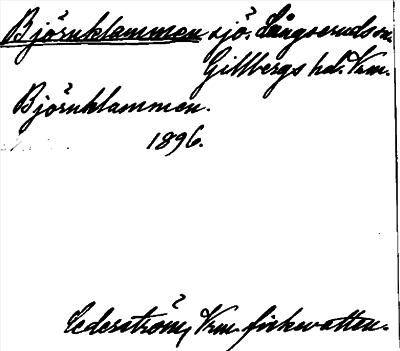 Björnklammen sjö. Långseruds sn.
Gillbergs hd. Vrm.
Björnklammen.
1896.
Cederström, Vrm. fiskevatten.